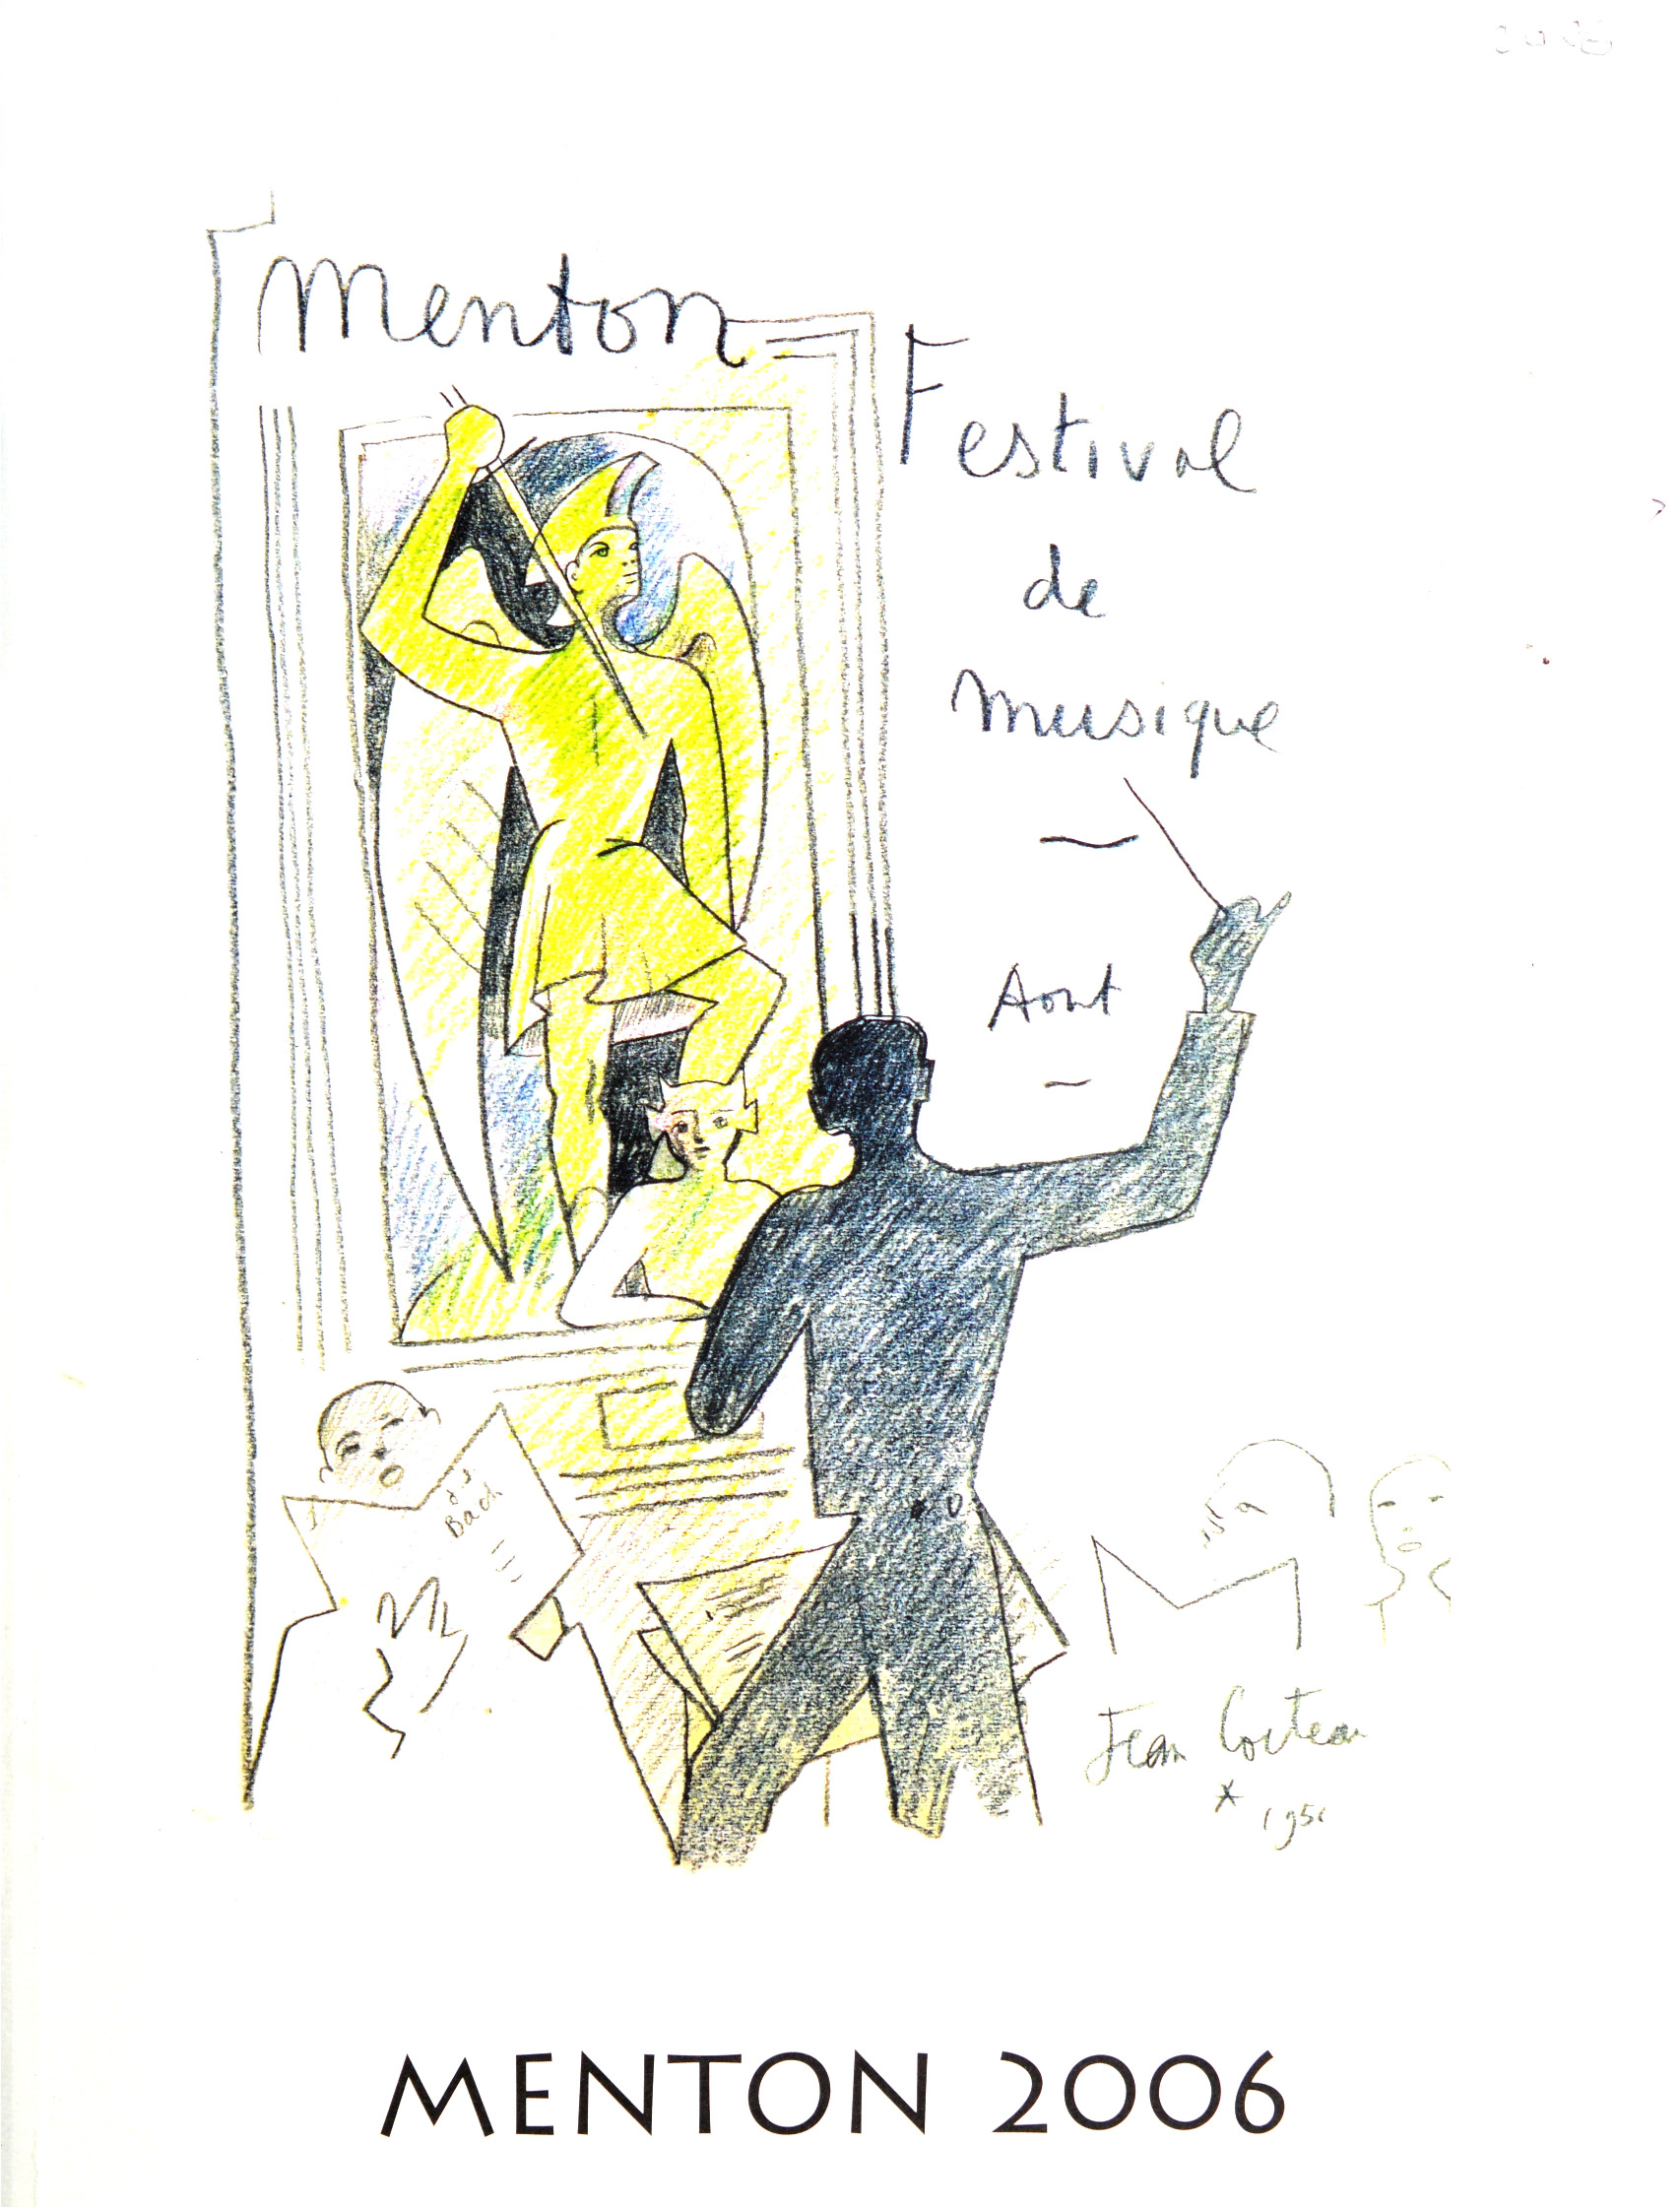 Menton
Festival
de
musique
Aout
J S
Bach
Jean Cocteau
* 1951
MENTON 2006